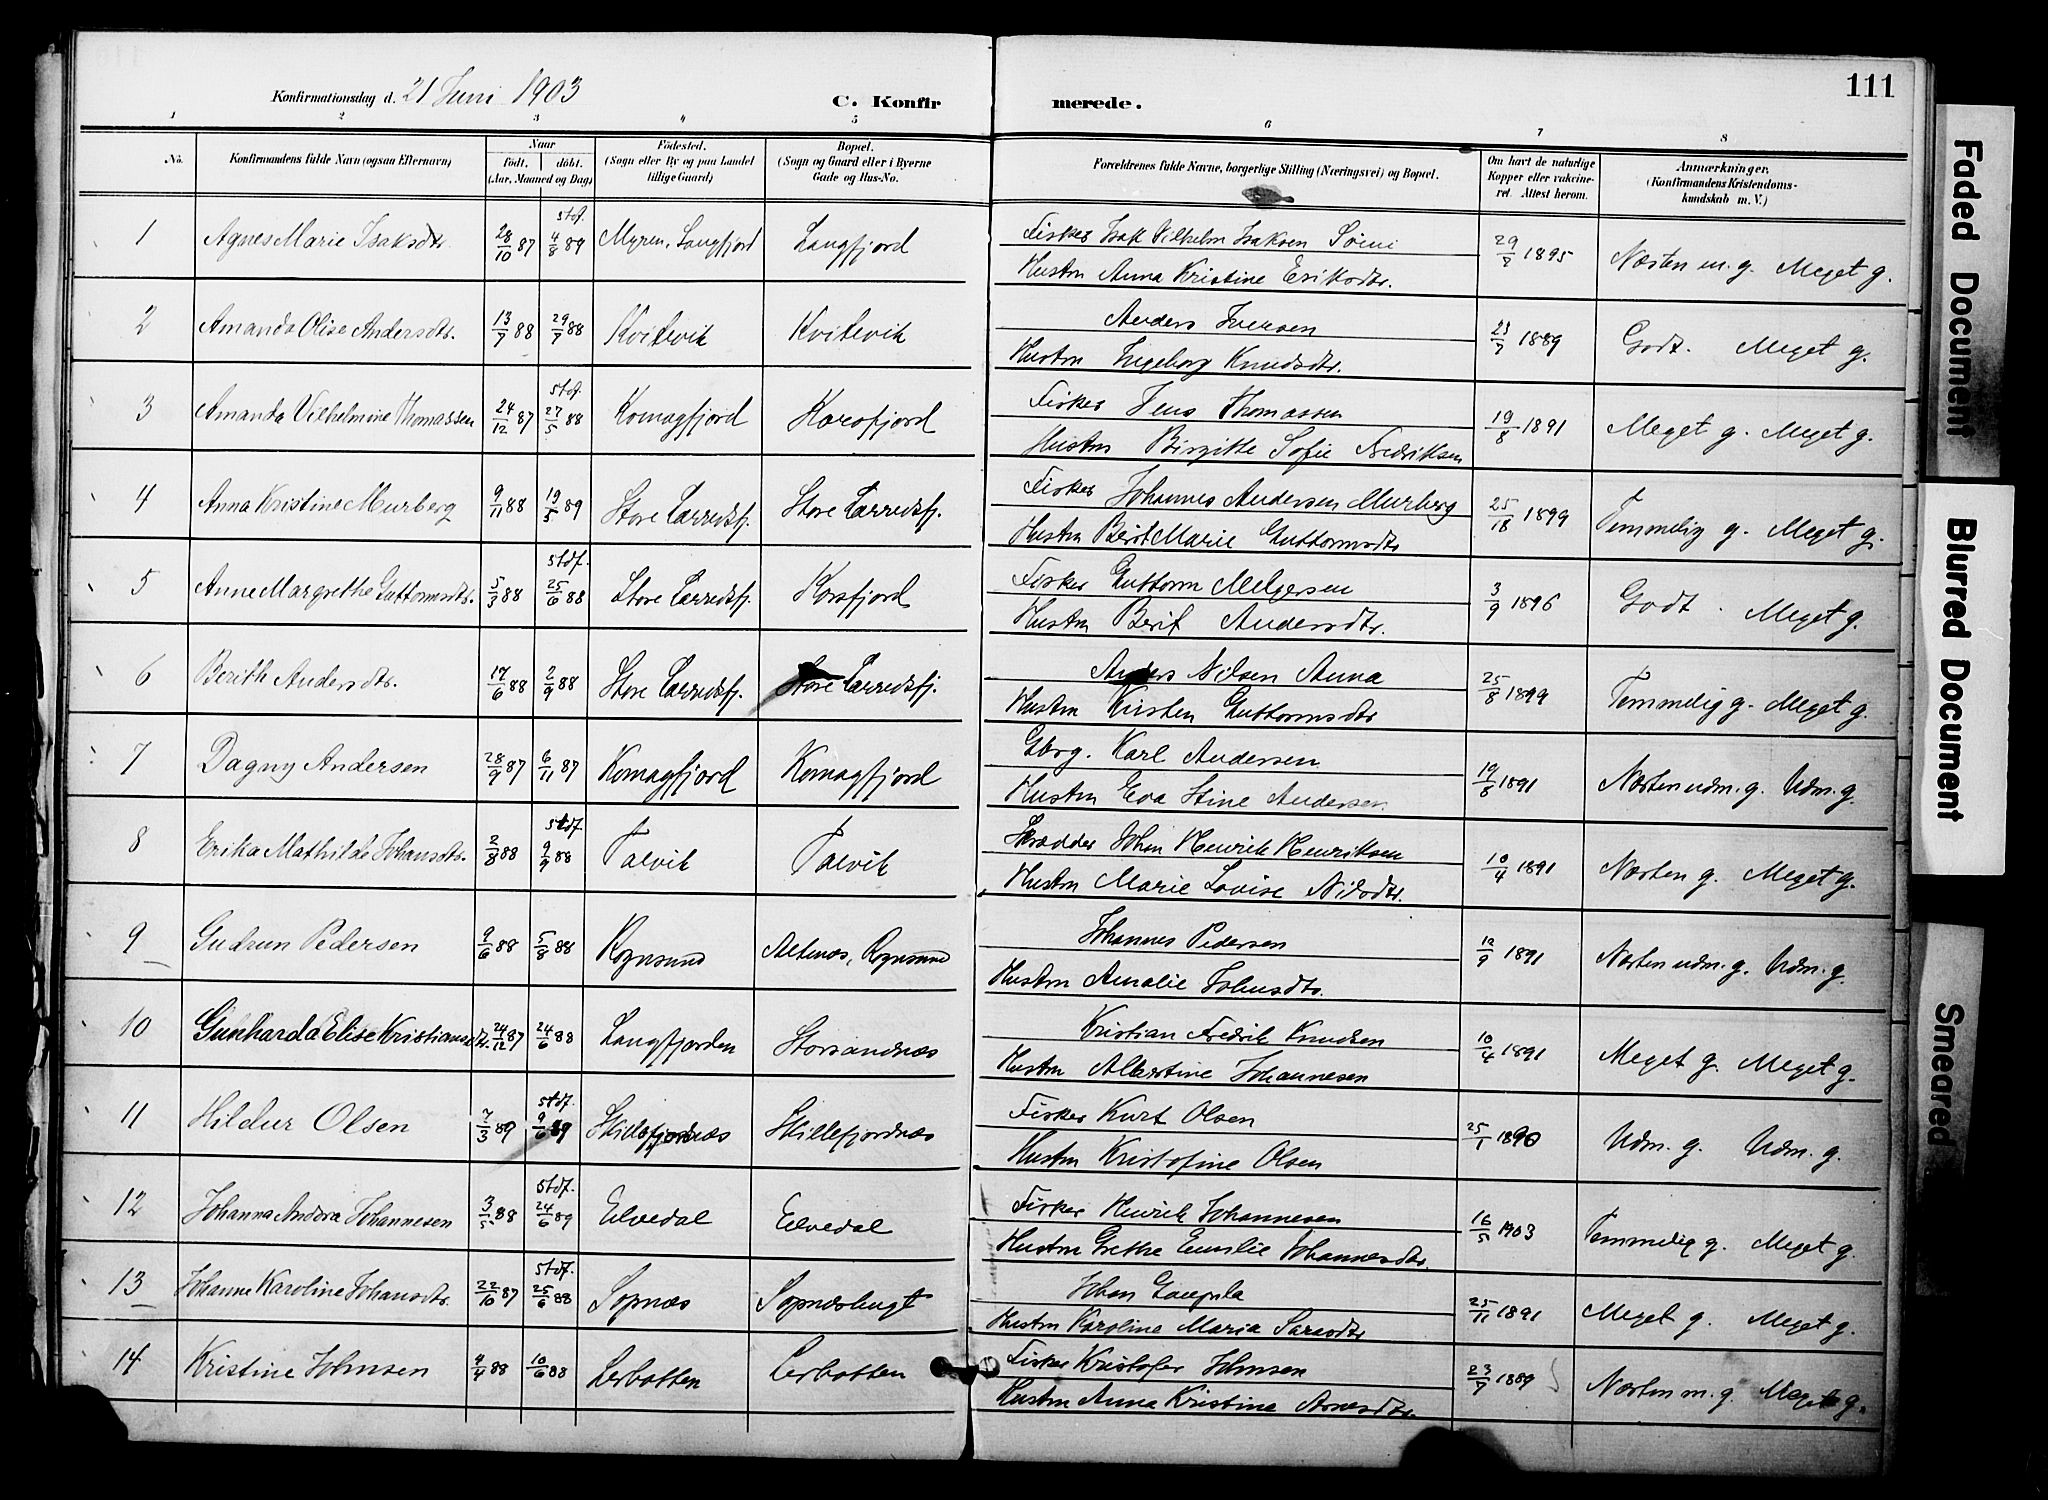 Konfirmationsdag d. 21 Juni 1903
C. Konfirmerede.
111
1 2 3 4 5 6 7 8
No.
Konfirmandens fulde Navn (ogsaa Efternavn)
Naar
født. døbt.
(Aar, Maaned og Dag)
Fødested.
(Sogn eller By og paa Landet tillige Gaard)
Bopæl.
(Sogn og Gaard eller i Byerne Gade og Hus-No.
Forældrenes fulde Navne, borgerlige Stilling (Næringsvei) og Bopæl.
Om havt de naturlige Kopper eller vakcineret. Attest herom.
Anmærkninger.
(Konfirmandens Kristendomskundskab m. V.)
1 Agnes Marie Isaksdtr. 28/10 87 stdf. 4/8 89 Myren, Langfjord Langfjord Fisker Isak Vilhelm Isaksen
Hustru Anna Kristine Eriksdtr. 1895 Næsten m. g. Meget g.
2 Amanda Olise Andersdtr. 13/7 88 29/7 88 Kvitevik Kvitevik Anders Iversen
Hustru Ingeborg Knudsdtr. 23/7 1889 Godt. Meget g.
3 Amanda Vilhelmine Thomassen 24/12 87 stdf. 27/5 88 Komagfjord Fisker Jens Thomassen
Hustru Birgitte Sofie Fredriksen 19/8 1891 Meget g. Meget g.
4 Anna Kristine Murberg 9/11 88 19/5 89 Store Lerredsfj. Store Lerredsfj. Fisker Johannes Andersen Murberg
Hustru Berit Marie Guttormsdtr 1899 Temmelig g. Meget g.
5 Anne Margrethe Guttormsdtr. 5/3 88 stdf. 25/6 88 Store Lerredsfj. Korsfjord Fisker Guttorm Melgersen
Hustru Berit Andersdtr. 3/9 1896 Godt. Meget g.
6 Berith Andersdtr. 17/6 88 2/9 88 Store Lerredsfj. Store Lerredsfj. Anders Nilsen Anna
Hustru Kirsten Guttormsdtr 25/8 1899 Temmelig g. Meget g.
7 Dagny Andersen 28/9 87 6/11 87 Komagfjord Komagfjord Gbrg. Karl Andersen
Hustru Eva Stine Andersen 19/8 1891 Næsten udm. g. Udm. g.
8 Erika Mathilde Johansdtr. 2/8 88 stdf. 9/9 88 Talvik Talvik Skrædder Johan Henrik Henriksen
Hustru Marie Lovise Nilsdtr. 10/4 1891 Næsten g. Meget g.
9 Gudrun Pedersen 9/6 88 5/8 88 Rognsund Altenæs, Rognsund Johannes Pedersen
Hustru Amalie Johnsdtr. 1891 Næsten udm. g. Udm. g.
10 Gunharda Elise Kristiansdtr. 24/12 87 24/6 88 Langfjorden Storsandnæs Kristian Fredrik Knudsen
Hustru Albertine Johannesen 10/4 1891 Meget g. Meget g.
11 Hildur Olsen 7/3 89 stdf. 9/6 89 Skillefjordnæs Skillefjordnæs Fisker Kurt Olsen
Hustru Kristofine Olsen 25/1 1890 Udm. g. Udm. g.
12 Johanna Andrea Johannesen 3/5 88 stdf. 24/6 89 Eilvedal Eilvedal Fisker Henrik Johannesen
Hustru Grethe Emilie Johannesdtr. 16/5 1903 Temmelig g. Meget g.
13 Johanne Karoline Johansdtr. 22/10 87 stdf. 25/6 88 Sopnæs Sopnæsbugt Johan
Hustru Karoline Maria Larsdtr 25/11 1891 Meget g. Meget g.
14 Kristine Johnsen 4/4 88 10/6 88 Lerbotten Lerbotten Fisker Kristofer Johnsen
Hustru Anna Kristine Arnesdtr. 23/7 1889 Næsten m. g. Meget g.
Faded Document
Blurred Document
Smeared